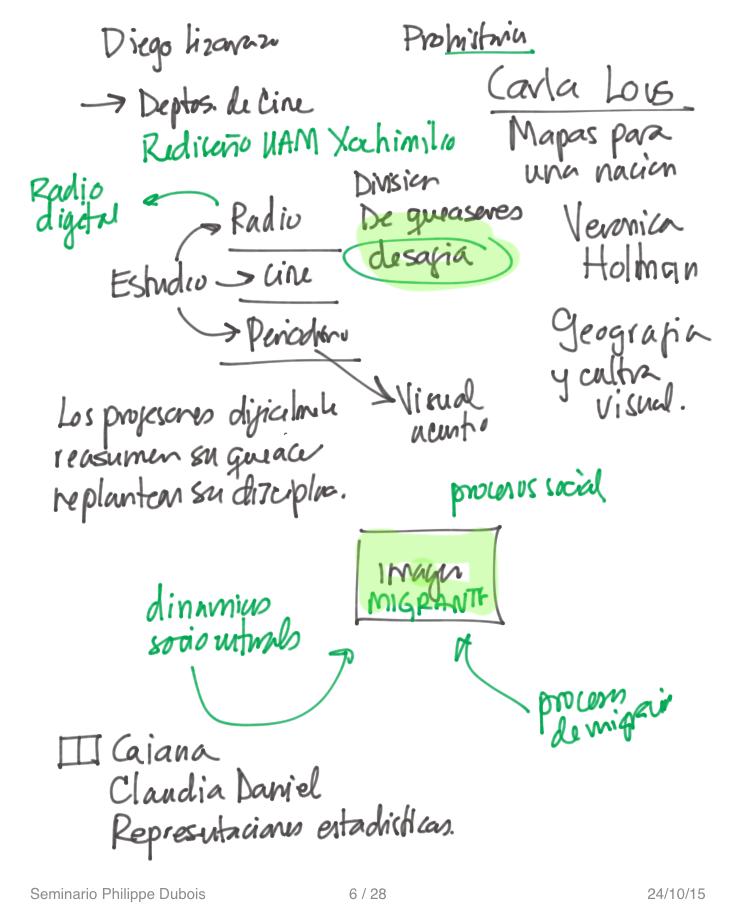 Diego Lizarazo
→ Deptos. de Cine
Rediseño UAM Xochimilco
Radio
digital
Radio
Estudio → Cine
Periodismo
División
De quehaceres
desafia
Prohistoria
Carla Lois
Mapas para
una nación
Veronica
Holman
Geografia
y cultra
visual.
Visual
Los profesores dificilmente
reasumen su
replantean su disciplina.
procesos social
Imagen
MIGRANTE
dinamicas
socioculturals
procesos
de migración
Caiana
Claudia Daniel
Representaciones estadísticas.
Seminario Philippe Dubois
6 / 28
24/10/15